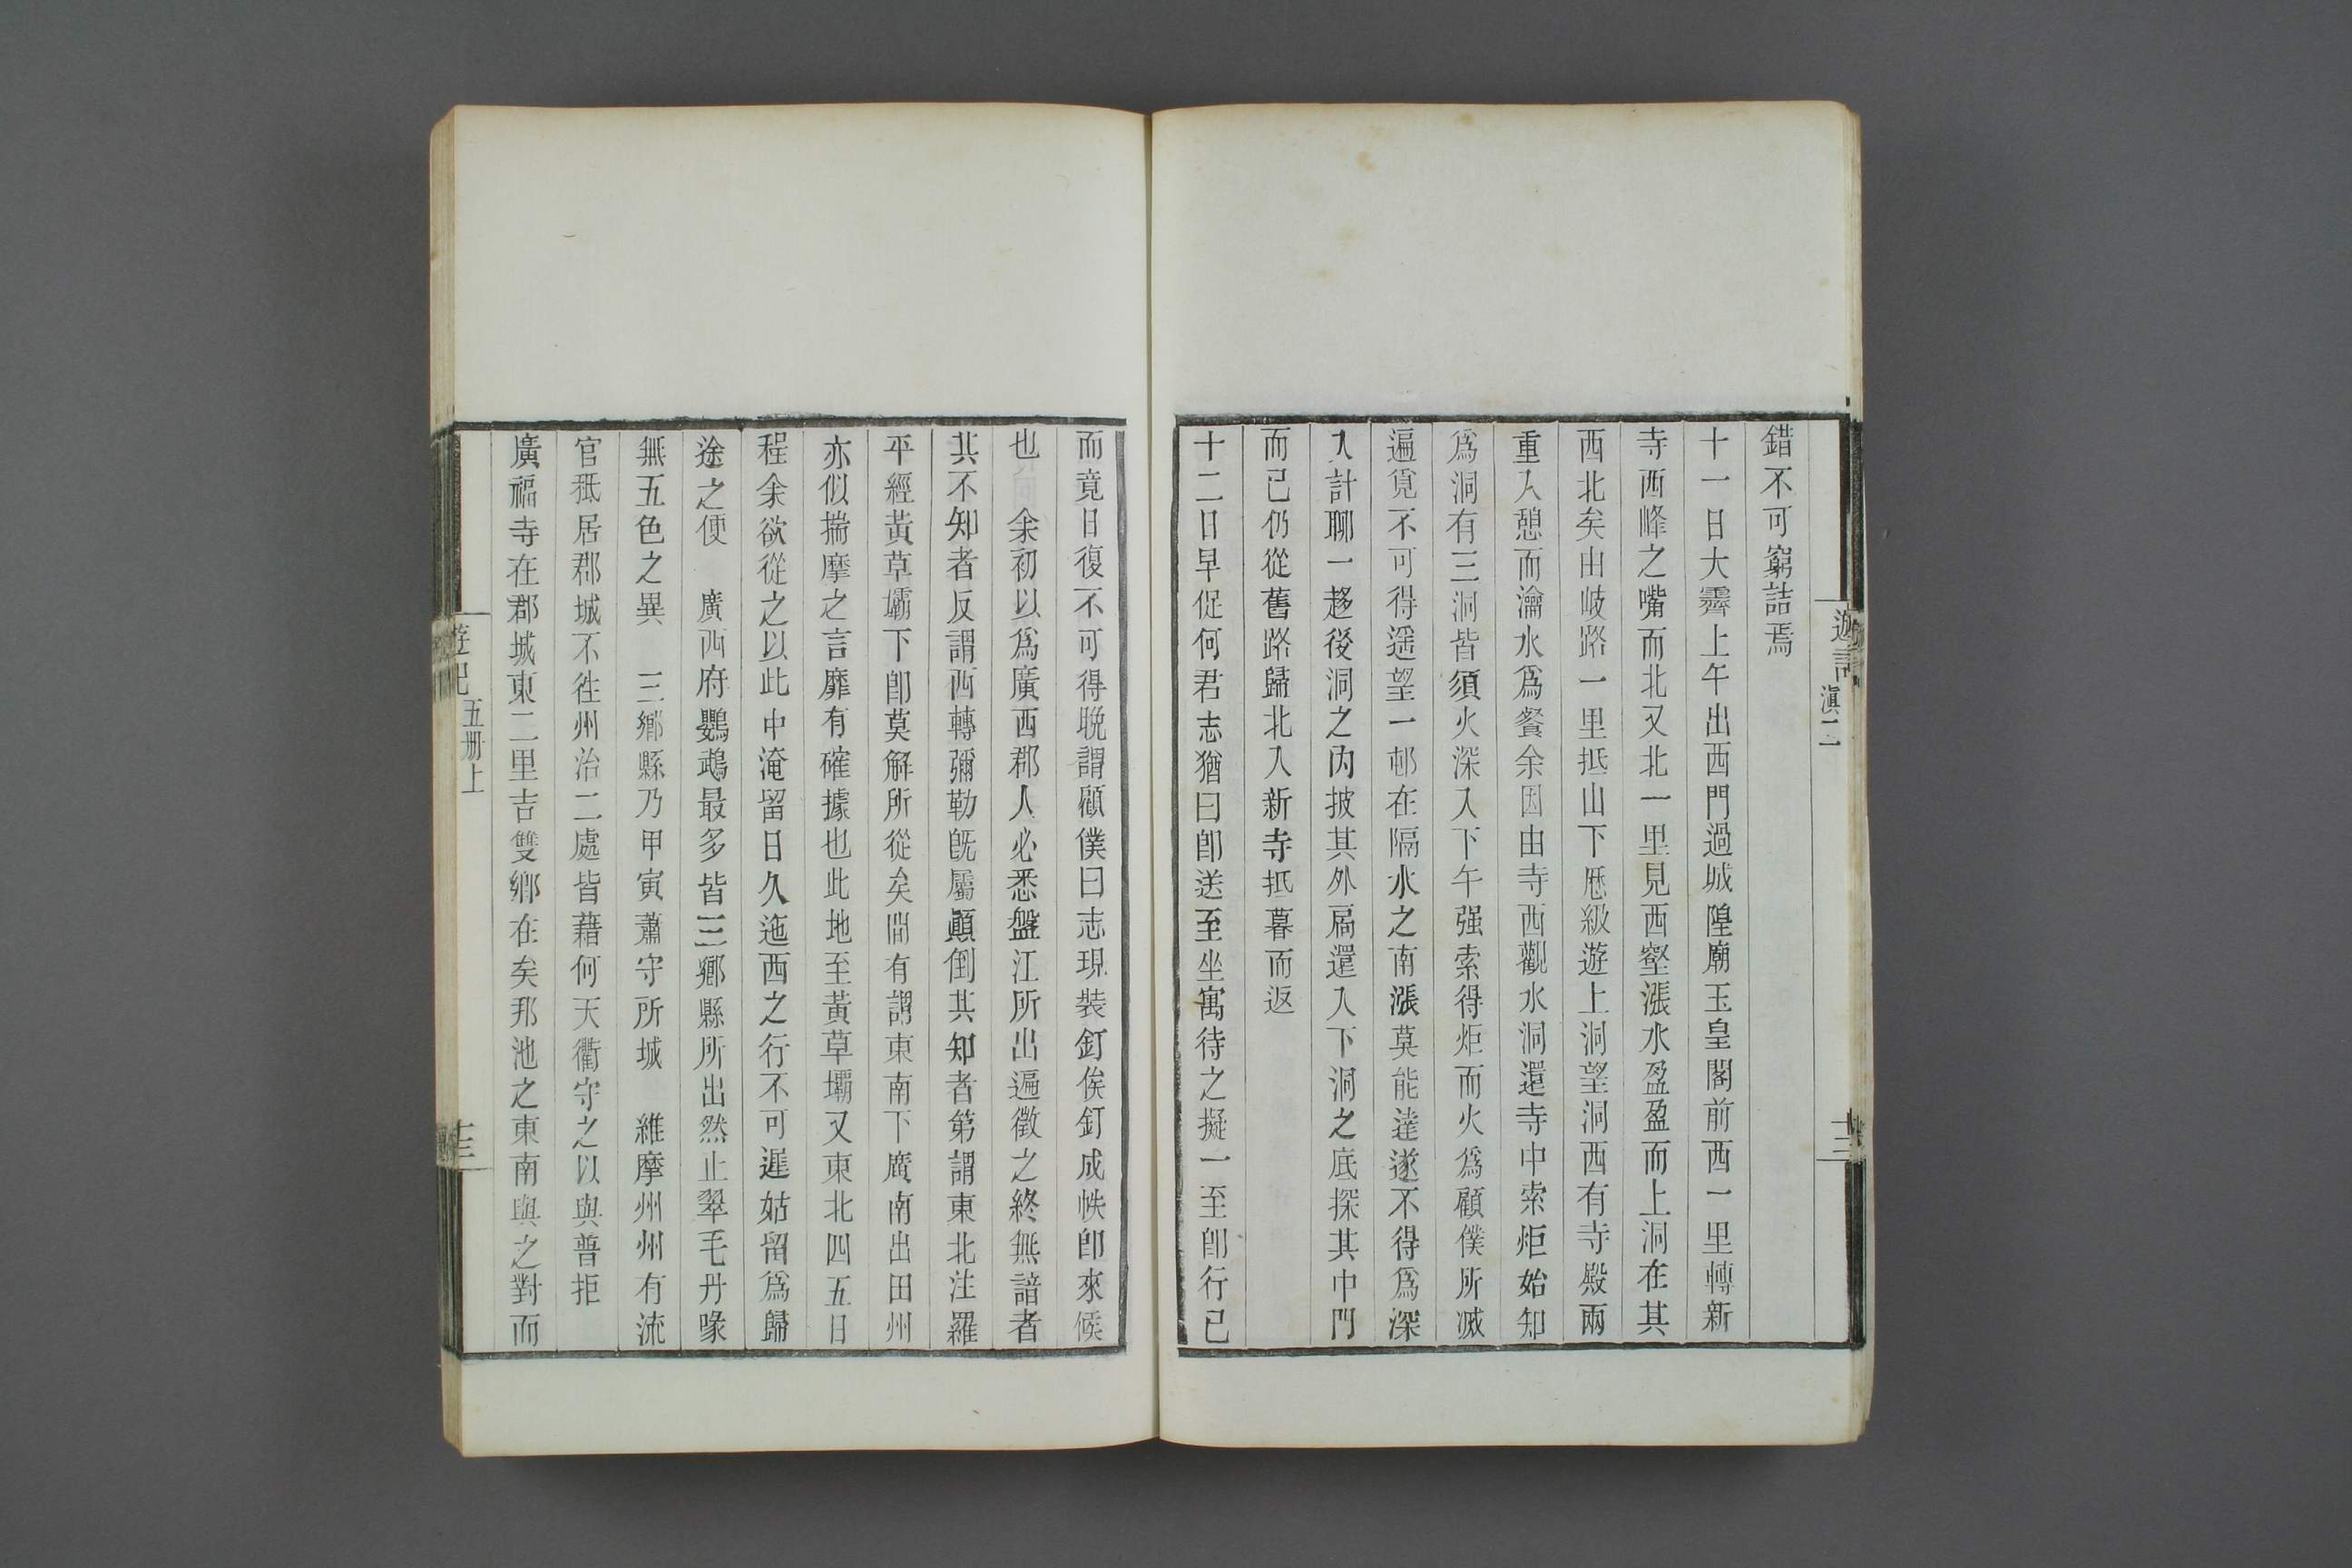 遊記
滇二
十三
錯不可窮詰焉
十一日大霽上午出西門過城隍廟玉皇閣前西一里轉新
寺西峰之嘴而北又北一里見西壑漲水盈盈而上洞在其
西北矣由岐路一里抵山下歷級遊上洞望洞西有寺殿兩
重入憩而瀹水爲餐余因由寺西觀水洞還寺中索炬始知
爲洞有三洞皆須火深入下午强索得炬而火爲顧僕所滅
遍覓不可得遥望一邨在隔水之南漲莫能達遂不得爲深
入計聊一趍後洞之内披其外扃還入下洞之底探其中門
而已仍從舊路歸北入新寺抵暮而返
十二日早促何君志猶曰卽送至坐寓待之擬一至卽行已
而竟日復不可得晚謂顧僕曰志現裝釘俟釘成帙卽來候
也　余初以爲廣西郡人必悉盤江所出遍徵之終無諳者
其不知者反謂西轉彌勒旣屬顚倒其知者第謂東北注羅
平經黃草壩下卽莫解所從矣間有謂東南下廣南出田州
亦似揣摩之言靡有確據也此地至黃草壩又東北四五日
程余欲從之以此中淹留日久迤西之行不可遲姑留爲歸
途之便　廣西府鸚鵡最多皆三鄉縣所出然止翠毛丹喙
無五色之異　三鄉縣乃甲寅蕭守所城　維摩州州有流
官秪居郡城不徃州治二處皆藉何天衢守之以與普拒
廣福寺在郡城東二里吉雙鄉在矣邦池之東南與之對而
遊記
五册上
十三